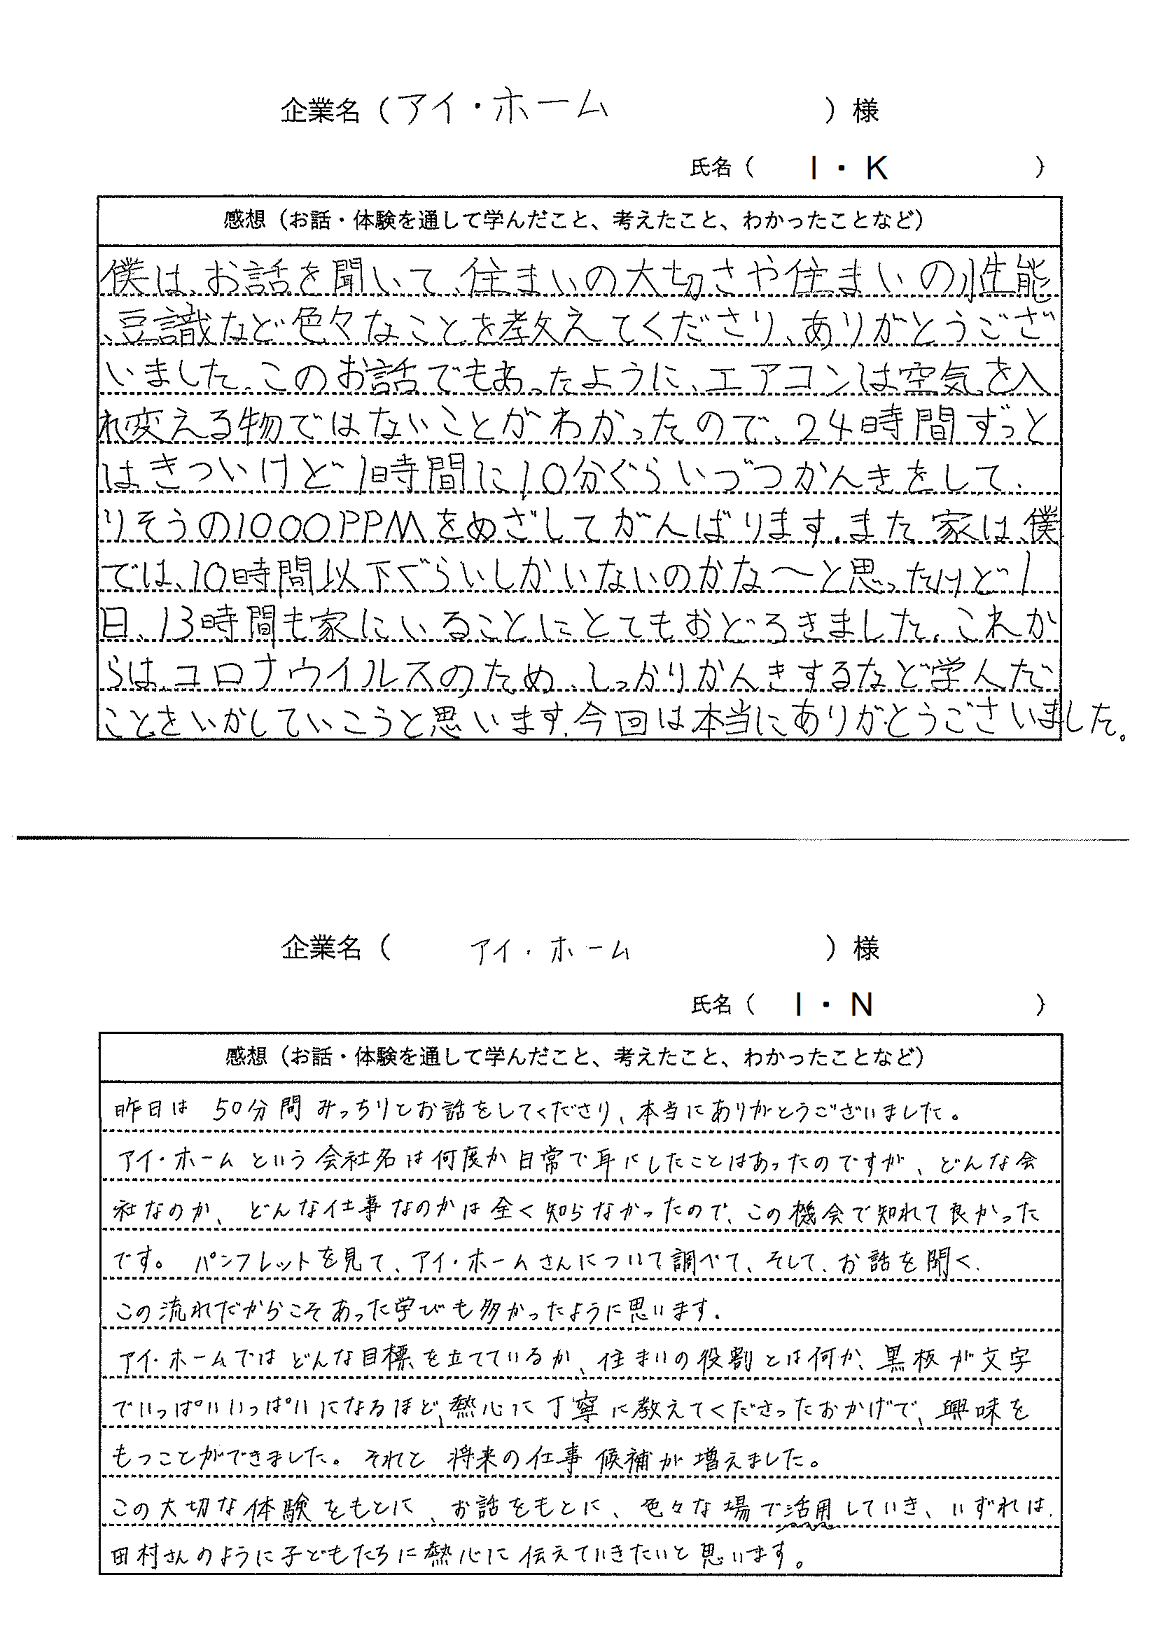 企業名（アイ・ホーム）様
氏名（ I・K ）
感想（お話・体験を通して学んだこと、考えたこと、わかったことなど）
僕は、お話を聞いて、住まいの大切さや住まいの性能
、豆識など色々なことを教えてくださり、ありがとうござ
いました。このお話でもあったように、エアコンは空気を入
れ変える物ではないことがわかったので、24時間ずっと
はきついけど1時間に10分ぐらいづつかんきをして、
りそうの1000PPMをめざしてがんばります。また家は、僕
では、10時間以下ぐらいしかいないのかな〜と思ったけど1
日、13時間も家にいることにとてもおどろきました。これか
らは、コロナウイルスのため、しっかりかんきするなど学んだ
ことをいかしていこうと思います。今回は本当にありがとうございました。
企業名（ アイ・ホーム ）様
氏名（ I・N ）
感想（お話・体験を通して学んだこと、考えたこと、わかったことなど）
昨日は 50分間 みっちりとお話をしてくださり、本当にありがとうございました。
アイ・ホーム という会社名は何度か日常で耳にしたことはあったのですが、どんな会
社なのか、どんな仕事なのかは全く知らなかったので、この機会で知れて良かった
です。 パンフレットを見て、アイ・ホームさんについて調べて、そして、お話を聞く、
この流れだからこそあった学びも多かったように思います。
アイ・ホームではどんな目標を立てているか、住まいの役割とは何か、黒板が文字
でいっぱいいっぱいになるほど、熱心に丁寧に教えてくださったおかげで、興味を
もつことができました。それと 将来の仕事候補が増えました。
この大切な体験をもとに、お話をもとに、色々な場で活用していき、いずれは、
田村さんのように子どもたちに熱心に伝えていきたいと思います。